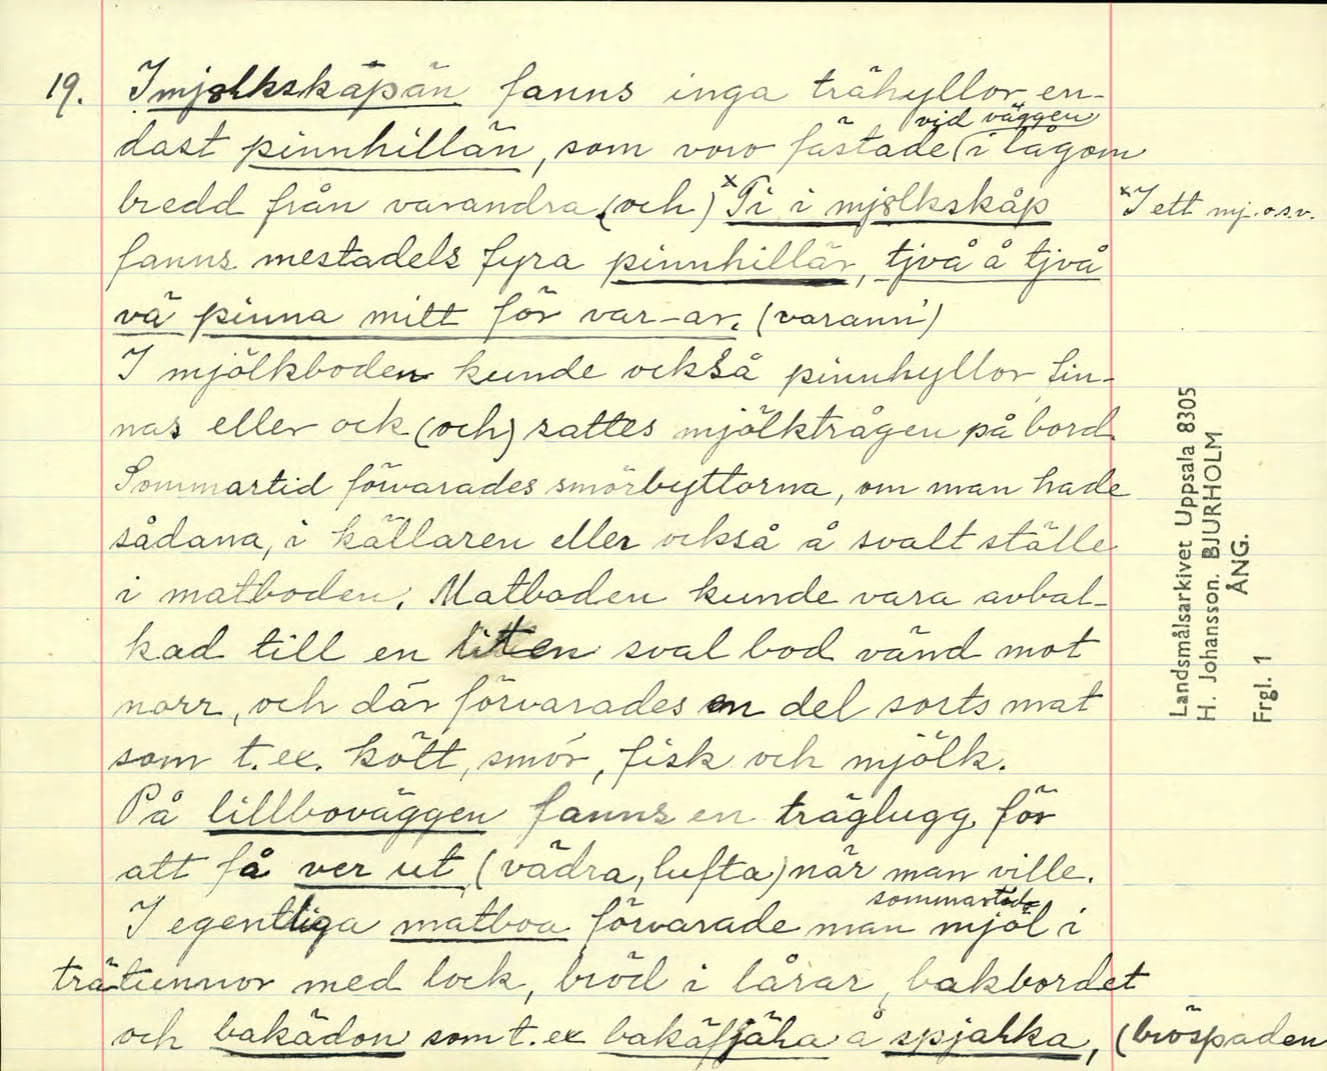 19. I mjölkskåpän fanns inga trähyllor en-
vid väggen
dast pinnhillän, som voro fästade i lagom
bredd från varandra (och) x Ti i mjölkskåp
x I ett mj. o.s.v.
fanns mestadels fyra pinnhillär, tjvå å tjvå
vä pinna mitt för var-ar. (varann')
I mjölkboden kunde också pinnhyllor fin-
nas eller ock (och) sattes mjölktrågen på bord.
Sommartid förvarades smörbyttorna, om man hade
sådana, i källaren eller också å svalt ställe
i matboden. Matboden kunde vara avbal-
kad till en liten sval bod vänd mot
norr, och där förvarades en del sorts mat
som t.ex. kött, smör, fisk och mjölk.
På lillboväggen fanns en träglugg för
att få ver ut (vädra, lufta) när man ville.
sommartid
I egentliga matboa förvarade man mjöl i
trätunnor med lock, bröd i lårar, bakbordet
och bakädon som t.ex bakäfjäha å spjahka, (bröspaden
Landsmålsarkivet Uppsala 8305
H. Johansson. BJURHOLM
ÅNG.
Frgl. 1